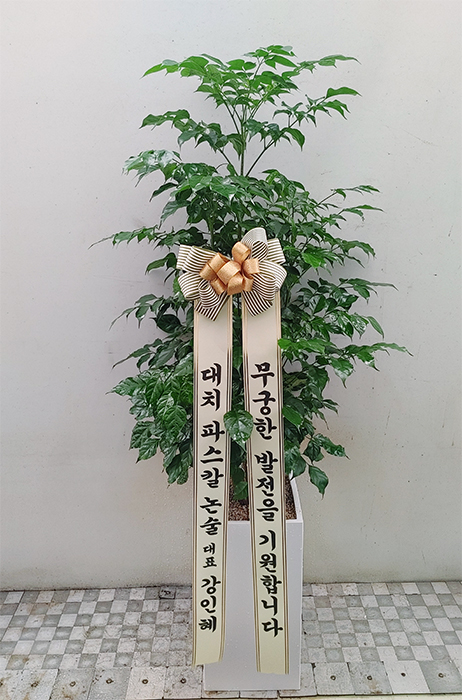 무궁한 발전을 기원합니다
대치 파스칼 논술 대표 강인혜